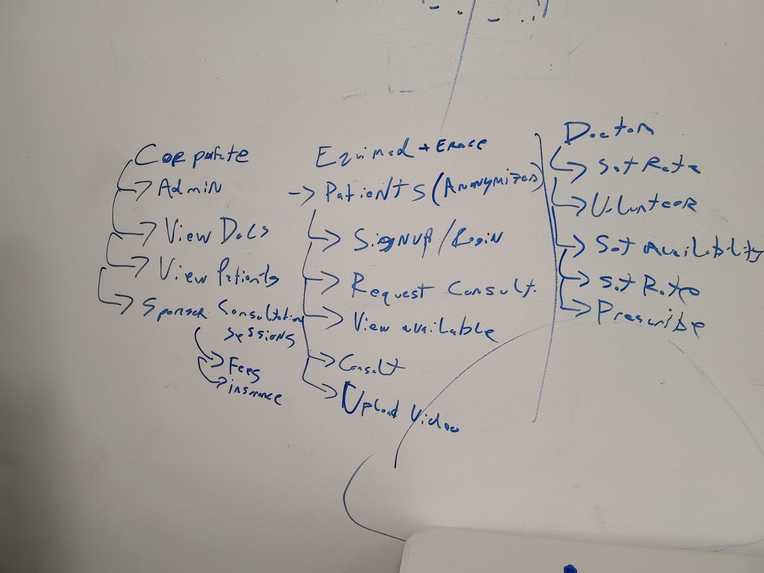 Corporate
Admin
View Docs
View Patients
Sponsor Consultation
sessions
Fees
insurance
Equimed + Erase
Patients (Anonymized)
Signup / Login
Request Consult.
View available
Consult
Upload Video
Doctor
Set Rate
Volunteer
Set Availability
Set Rate
Prescribe